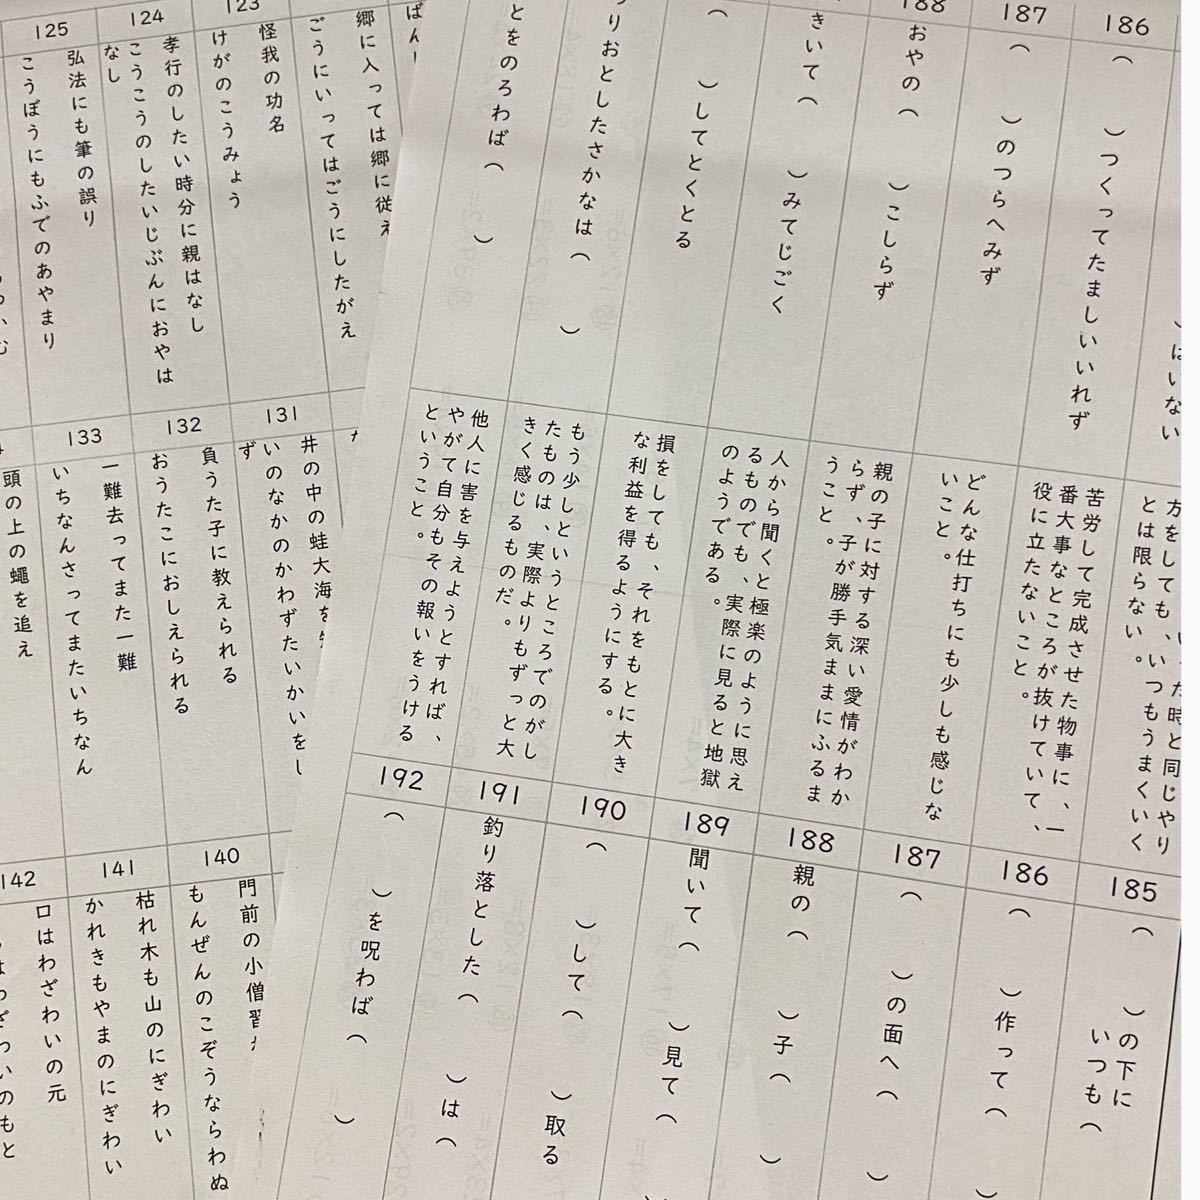 186
(　　)つくってたましいいれず
187
(　　)のつらへみず
188
おやの(　　)こしらず
きいて(　　)みてじごく
(　　)してとくとる
りおとしたさかなは(　　)
とをのろわば(　　)
)はいない
方をしても、
た時と同じやり
とは限らない。
いつもうまくいく
苦労して完成させた物事に、一
番大事なところが抜けていて、
役に立たないこと。
どんな仕打ちにも少しも感じな
いこと。
親の子に対する深い愛情がわか
らず、子が勝手気ままにふるま
うこと。
人から聞くと極楽のように思え
るものでも、実際に見ると地獄
のようである。
損をしても、それをもとに大き
な利益を得るようにする。
もう少しというところでのがし
たものは、実際よりもずっと大
きく感じるものだ。
他人に害を与えようとすれば、
やがて自分もその報いをうける
ということ。
185
(　　)の下に
いつも(
186
(　　)作って(
187
(　　)の面へ(　　)
188
親の(　　)子(　　)
189
聞いて(　　)見て(　　)
190
(　　)して(　　)取る
191
釣り落とした(　　)は(
192
(　　)を呪わば(　　)
郷に入っては郷に従え
ごうにいってはごうにしたがえ
123
怪我の功名
けがのこうみょう
124
孝行のしたい時分に親はなし
こうこうのしたいじぶんにおやは
なし
125
弘法にも筆の誤り
こうぼうにもふでのあやまり
131
井の中の蛙大海を
いのなかのかわずたいかいをし
ず
132
負うた子に教えられる
おうたこにおしえられる
133
一難去ってまた一難
いちなんさってまたいちなん
頭の上の蠅を追え
140
門前の小僧習
もんぜんのこぞうならわぬ
141
枯れ木も山のにぎわい
かれきもやまのにぎわい
142
口はわざわいの元